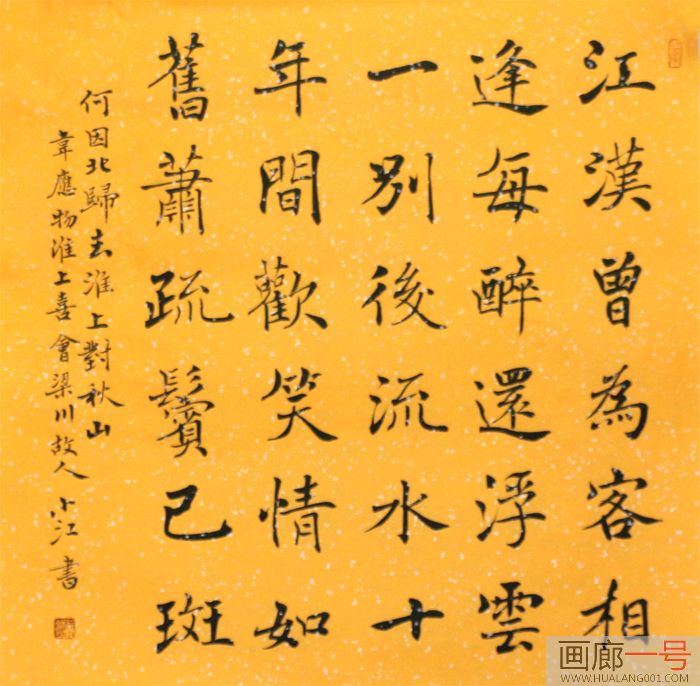 江漢曾為客相
逢每醉還浮雲
一別後流水十
年間歡笑情如
舊蕭疏鬢已斑
何因北歸去淮上對秋山
韋應物淮上喜會梁川故人 小江書
画廊一号
WWW.HUALANG001.COM